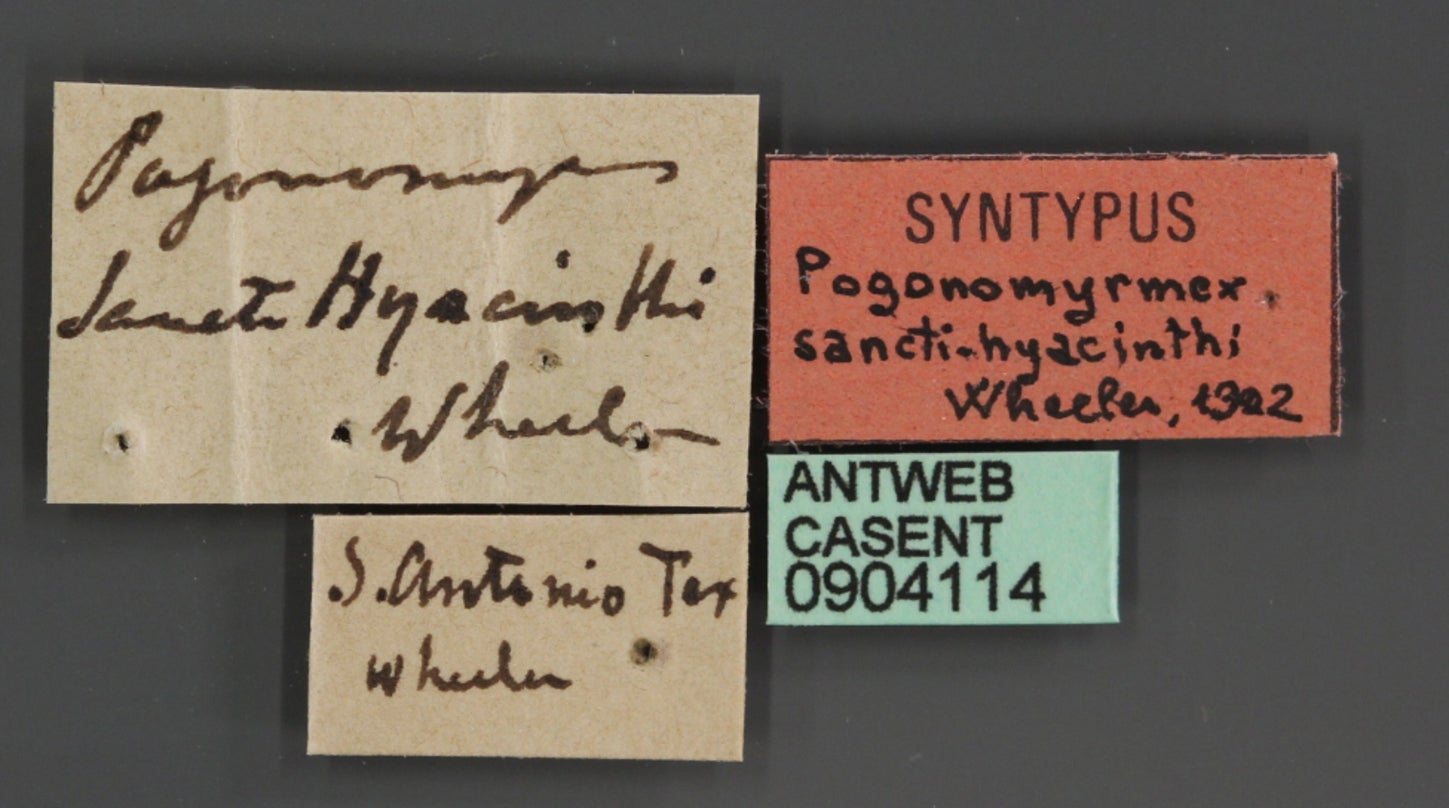 Pogonomyrmex
Sancti Hyacinthi
Wheeler
S. Antonio Tex
Wheeler
SYNTYPUS
Pogonomyrmex
sancti-hyacinthi
Wheeler, 1902
ANTWEB
CASENT
0904114